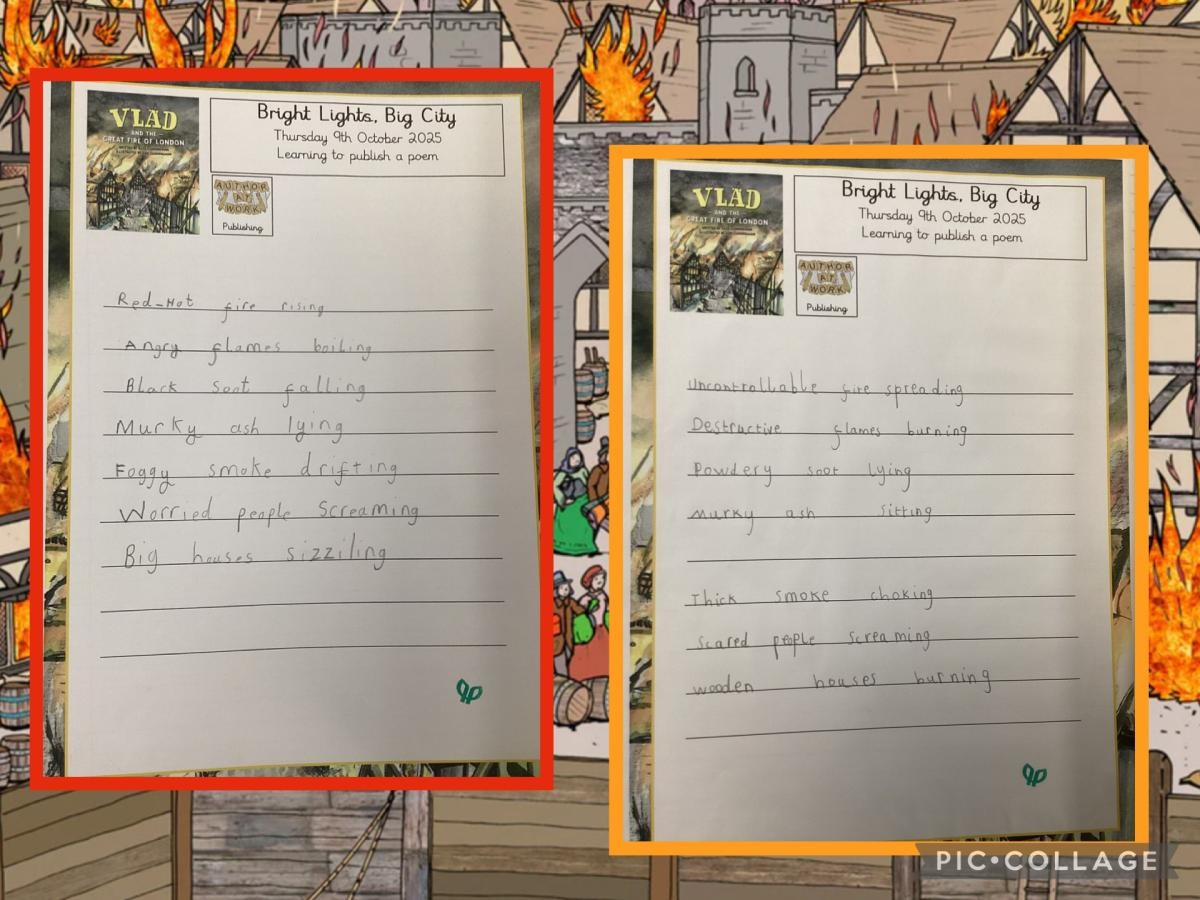 VLAD
AND THE
GREAT FIRE OF LONDON
Bright Lights, Big City
Thursday 9th October 2025
Learning to publish a poem
AUTHOR
AT
WORK
Publishing
Red-Hot fire rising
Angry flames boiling
Black soot falling
Murky ash lying
Foggy smoke drifting
Worried people Screaming
Big houses sizziling
VLAD
AND THE
GREAT FIRE OF LONDON
Bright Lights, Big City
Thursday 9th October 2025
Learning to publish a poem
AUTHOR
AT
WORK
Publishing
Uncontrollable fire spreading
Destructive flames burning
Powdery soot lying
Murky ash sitting
Thick smoke choking
Scared people screaming
wooden houses burning
PIC•COLLAGE